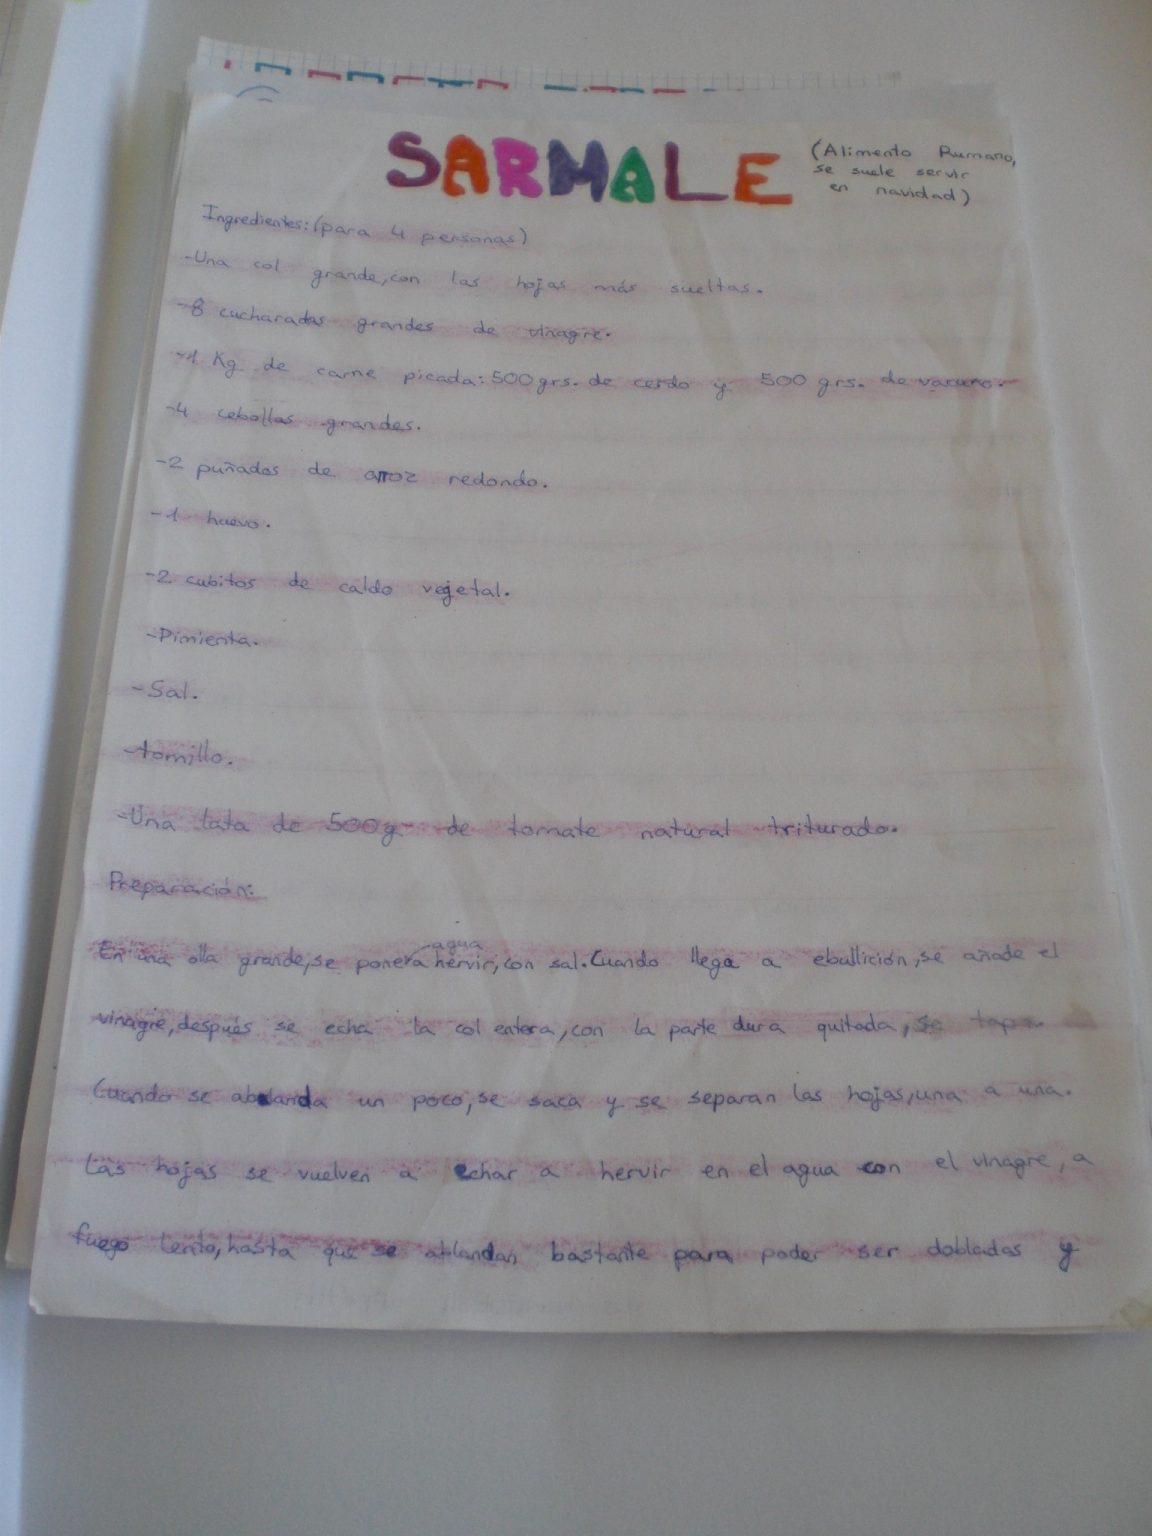 SARMALE
(Alimento Rumano,
se suele servir
en navidad)
Ingredientes: (para 4 personas)
-Una col grande, con las hojas más sueltas.
-8 cucharadas grandes de vinagre.
-1 Kg de carne picada: 500 grs. de cerdo y 500 grs. de vacuno.
-4 cebollas grandes.
-2 puñados de arroz redondo.
-1 huevo.
-2 cubitos de caldo vegetal.
-Pimienta.
-Sal.
-tomillo.
-Una lata de 500g. de tomate natural triturado.
Preparación:
En una olla grande, se pone agua a hervir, con sal. Cuando llega a ebullición, se añade el
vinagre, después se echa la col entera, con la parte dura quitada, se tapa.
Cuando se ablanda un poco, se saca y se separan las hojas, una a una.
Las hojas se vuelven a echar a hervir en el agua con el vinagre, a
fuego lento, hasta que se ablandan bastante para poder ser dobladas y